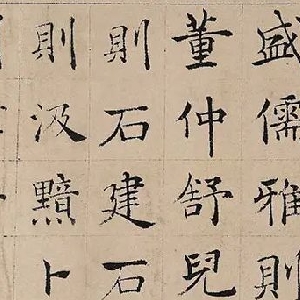 盛儒雅則
董仲舒兒
則石建石
則汲黯卜